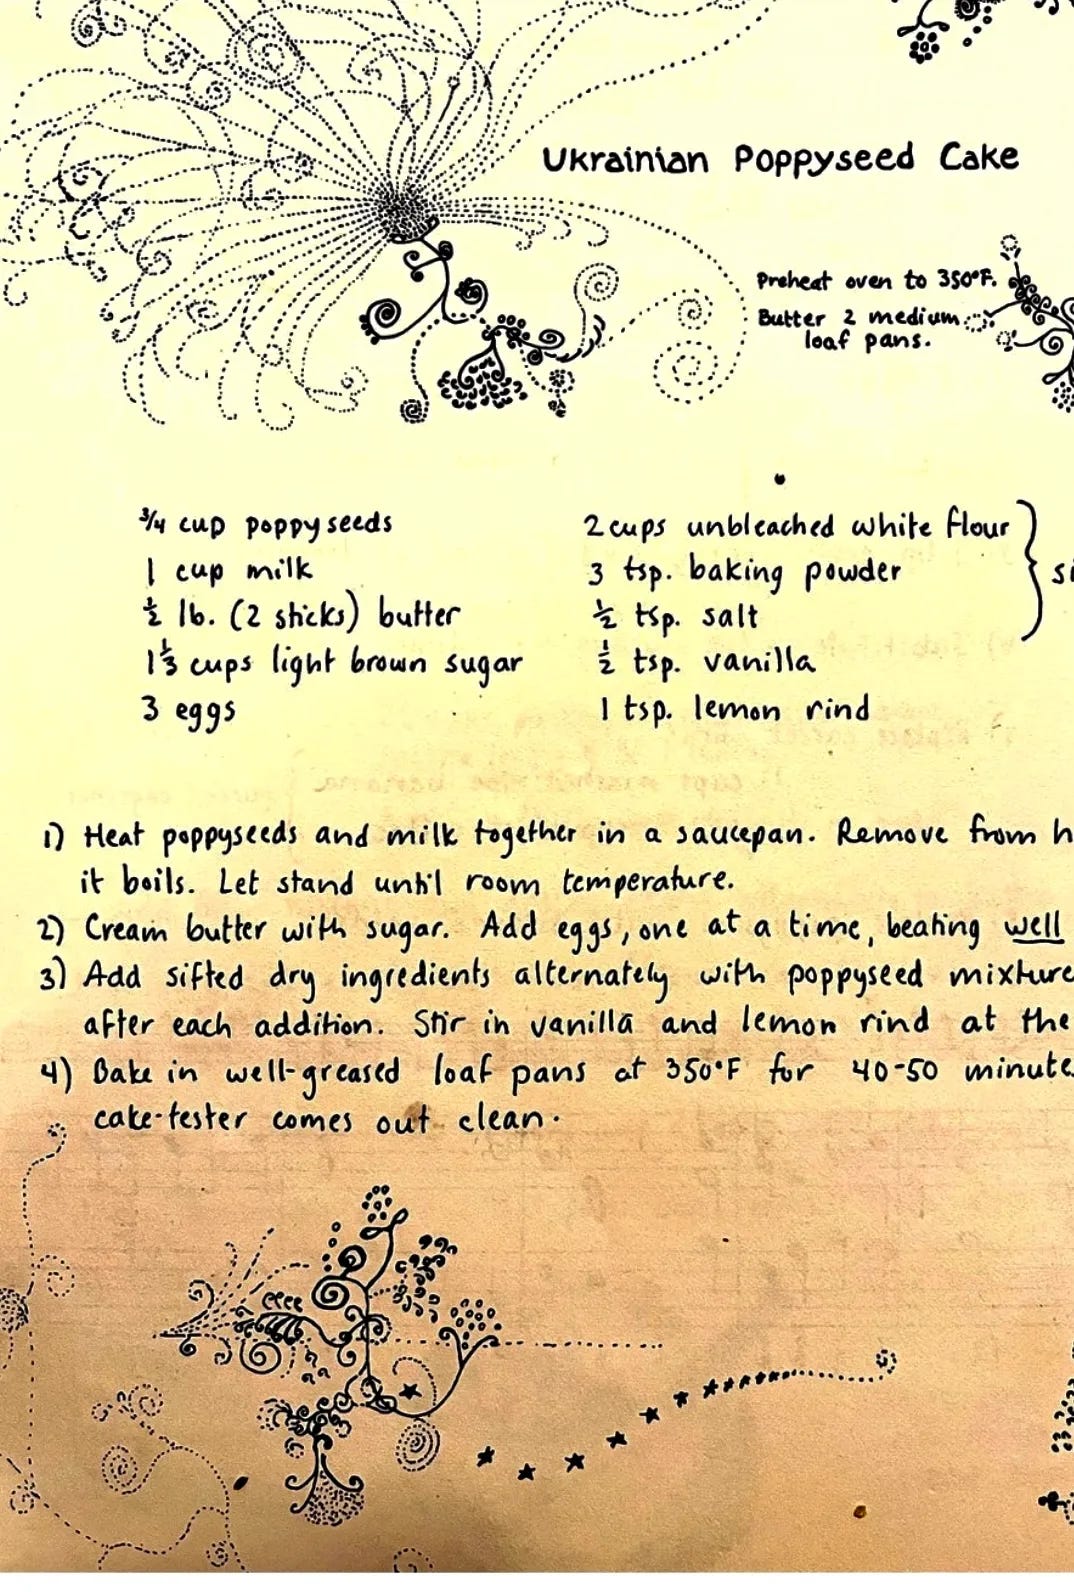 Ukrainian Poppyseed Cake
Preheat oven to 350°F.
Butter 2 medium
loaf pans.
3/4 cup poppyseeds
1 cup milk
1/2 lb. (2 sticks) butter
1 1/3 cups light brown sugar
3 eggs
2 cups unbleached white flour
3 tsp. baking powder
1/2 tsp. salt
1/2 tsp. vanilla
1 tsp. lemon rind
1) Heat poppyseeds and milk together in a saucepan. Remove from h
it boils. Let stand until room temperature.
2) Cream butter with sugar. Add eggs, one at a time, beating well
3) Add sifted dry ingredients alternately with poppyseed mixture
after each addition. Stir in vanilla and lemon rind at the
4) Bake in well-greased loaf pans at 350°F for 40-50 minute
cake-tester comes out clean.